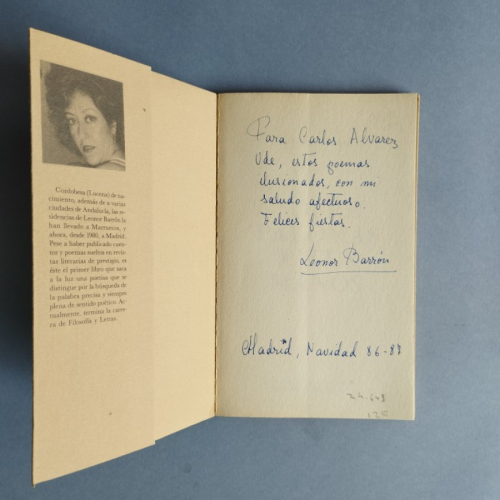 Cordobesa (Lucena) de na-
cimiento, además de a varias
ciudades de Andalucía, las re-
sidencias de Leonor Barrón la
han llevado a Marruecos, y
ahora, desde 1980, a Madrid.
Pese a haber publicado cuen-
tos y poemas sueltos en revis-
tas literarias de prestigio, es
éste el primer libro que saca
a la luz una poetisa que se
distingue por la búsqueda de
la palabra precisa y siempre
plena de sentido poético. Ac-
tualmente, termina la carre-
ra de Filosofía y Letras.
Para Carlos Alvarez
Ude, estos poemas
ilusionados, con mi
saludo afectuoso.
Felices fiestas.
Leonor Barrón
Madrid, Navidad 86-87